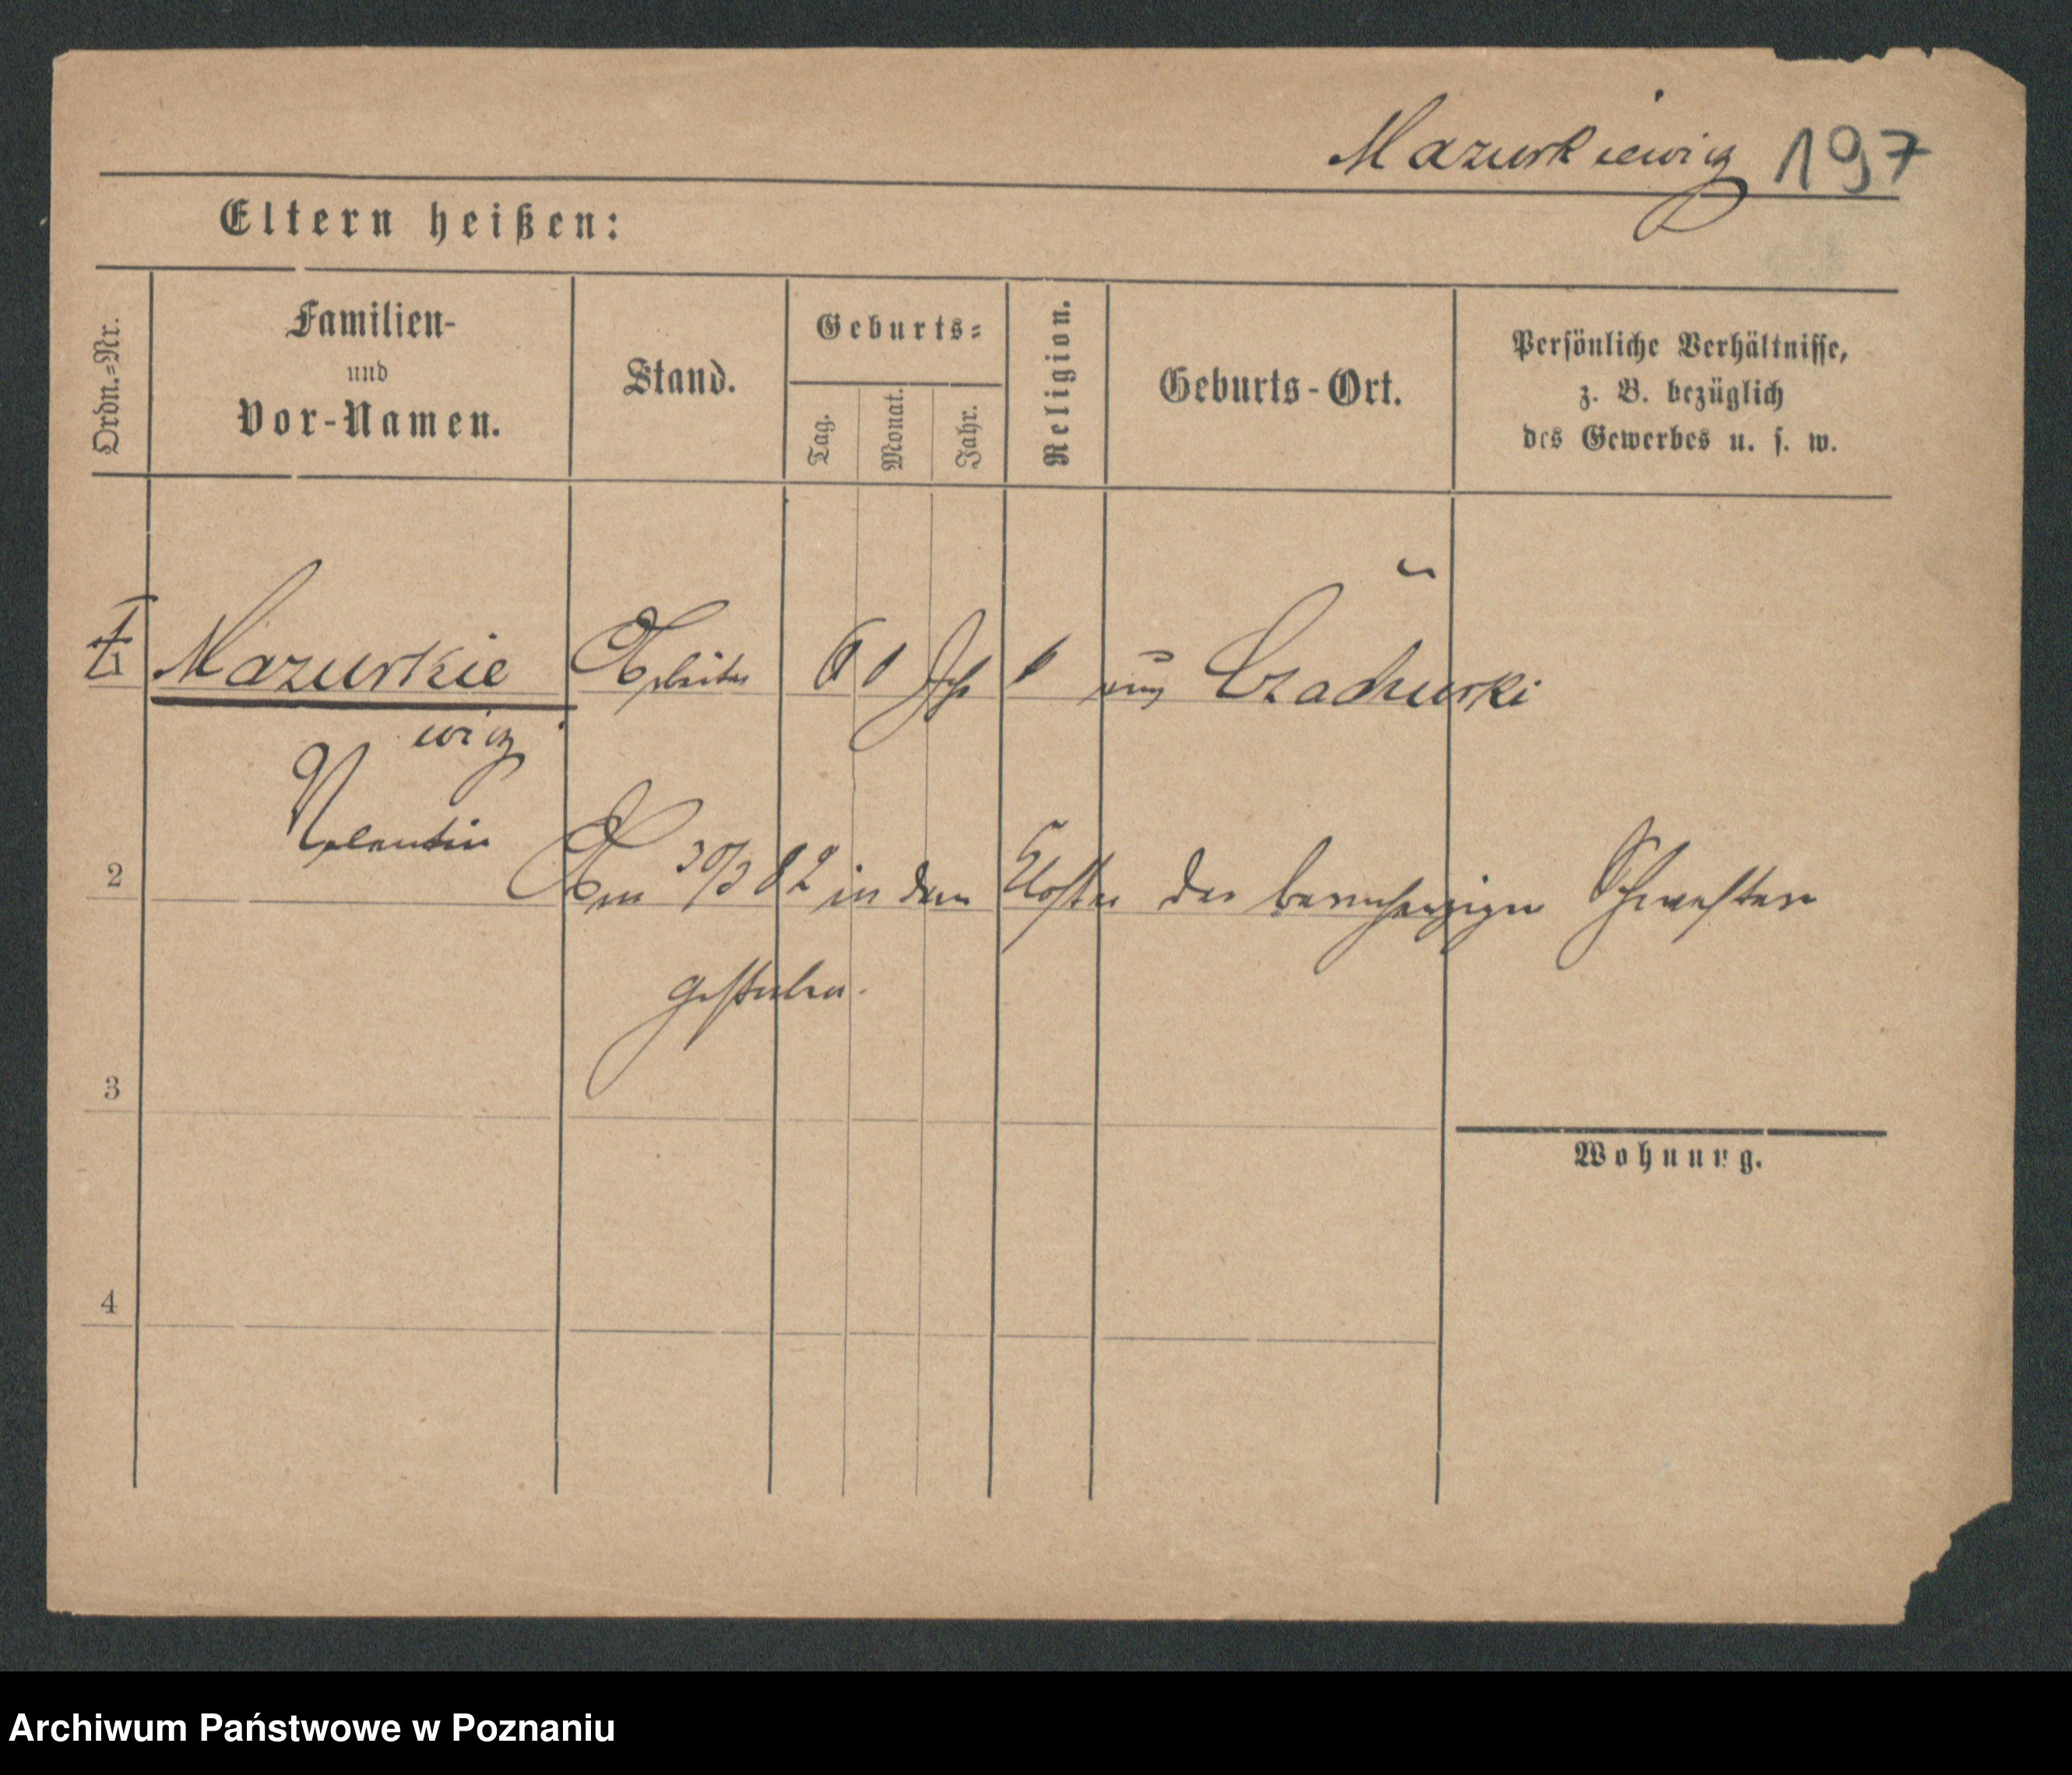 Mazurkiewicz 197
Eltern heißen:
Ordn.-Nr.
Familien-
und
Vor-Namen.
Stand.
Geburts-
Tag.
Monat.
Jahr.
Religion.
Geburts-Ort.
Persönliche Verhältnisse,
z. B. bezüglich
des Gewerbes u. s. w.
1 Mazurkie Arbeiter Jhr aus Czachurki
wicz
Valentin
2 Am 30/3 82 in dem Kloster der barmherzigen Schwestern
gestorben.
3
Wohnung.
4
Archiwum Państwowe w Poznaniu